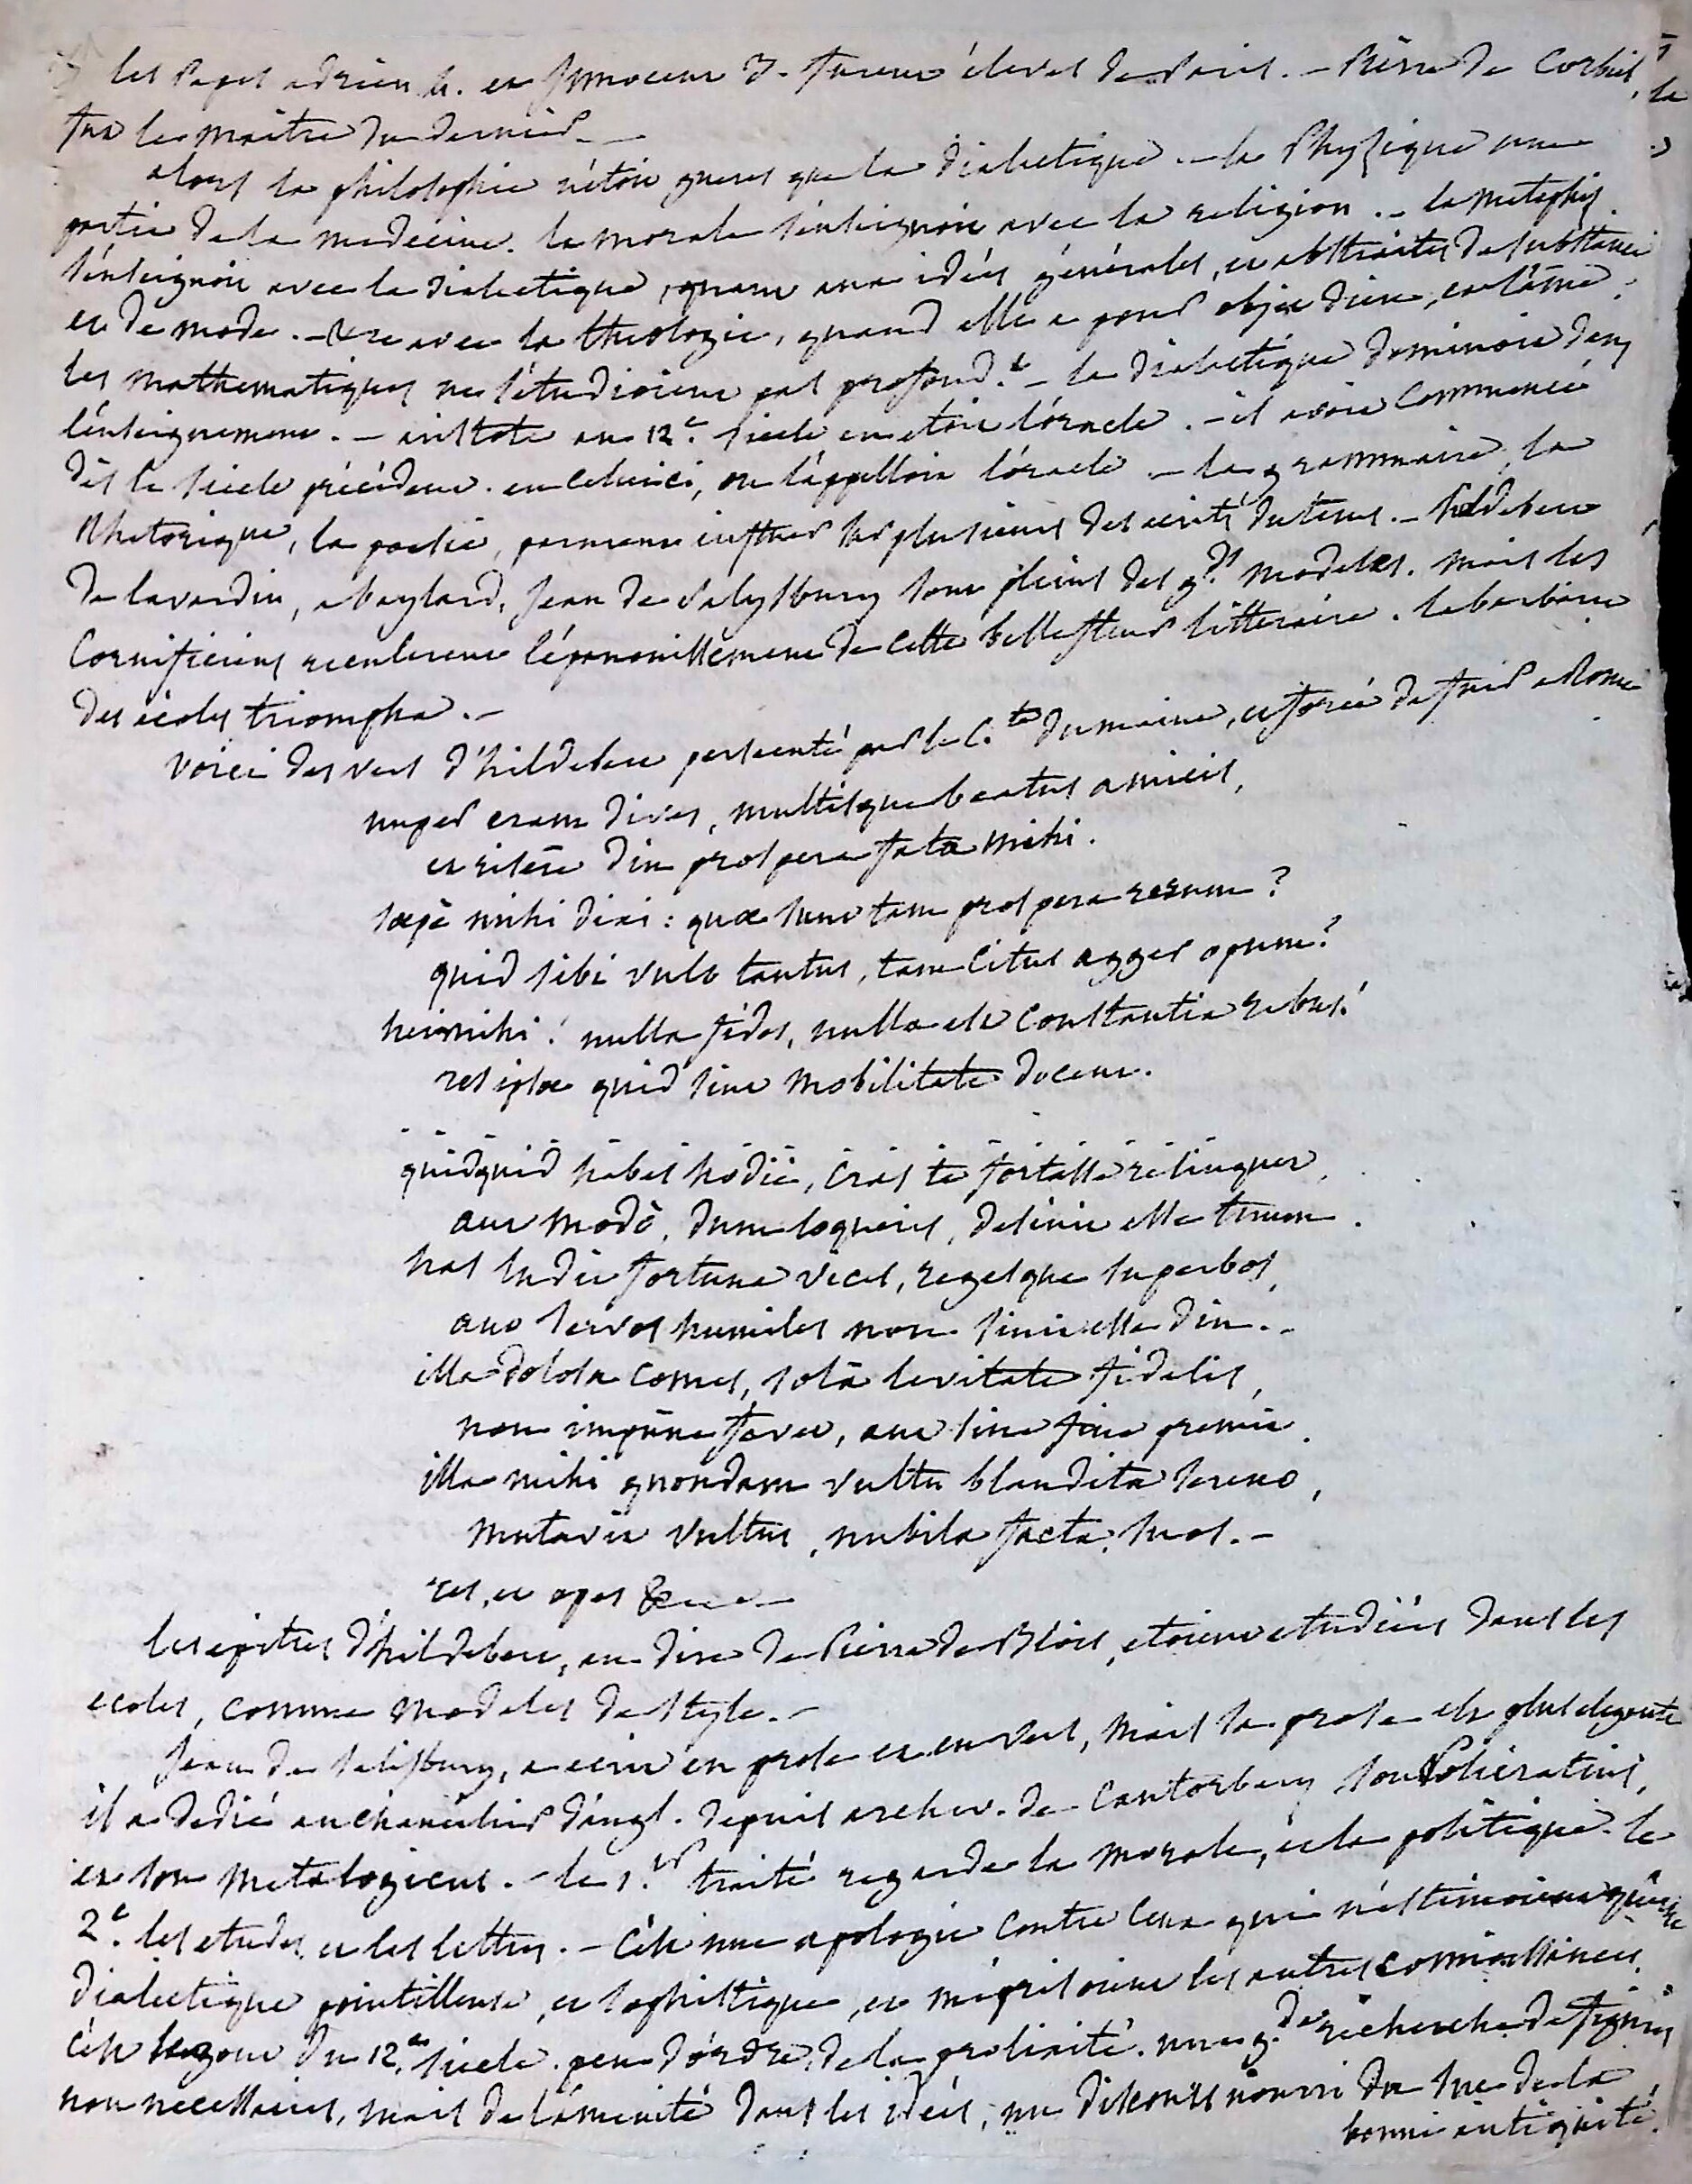 les Papes adrien 4. et Innocent 3. furent élevés de Paris. – Pierre de Corbeil,
fut le maître du dernier. –
alors la philosophie n'étoit gueres que la dialectique. – la Physique une
partie de la medecine. la morale s'enseignoit avec la religion. – la metaphys.
s'enseignoit avec la dialectique, quant aux idées générales, et abstraites de substance
et de mode. – &c avec la theologie, quand elle a pour objet dieu, et l'âme.
les mathematiques ne s'étudioient pas profond.t – la dialectique dominoit dans
l'enseignement. – aristote au 12.e siecle en etoit l'oracle. – il avoit commencé
dès le siecle précédent. en celui ci, on l'appelloit l'oracle – la grammaire, la
Rhetorique, la poesie, parurent influer sur plusieurs des ecrits du tems. – hildebert
de lavardin, abaylard, Jean de Salysbury sont pleins des g.ds modeles. mais les
Cornificiens reculerent l'épanouissement de cette belle fleur litteraire. la barbarie
des écoles triompha. –
voici des vers d'hildebert persecuté par le C.te du maine, et forcé de fuir a Rome
nuper eram dives, multisque beatus amicis,
et risere diu prospera fata mihi.
sæpè mihi dixi : quæ sunt tam prospera rerum ?
quid sibi vult tantus, tam citus agger opum ?
hei mihi ! nulla fides, nulla est constantia rebus !
res ipsæ quid sint mobilitate docent.
quidquid habes hodiè, cras te fortasse relinquet,
aut modò, dum loqueris, desinit esse tuum.
has ludit fortuna vices, regesque superbos,
aut servos humiles non sinit esse diu. –
illa dolosa comes, solâ levitate fidelis,
non impune favet, aut sine fine premit.
illa mihi quondam vultu blandita sereno,
mutavit vultus, nubila facta, suos. –
res, et opes &c
les epitres d'hildebert, au dire de Pierre de Blois, etoient etudiées dans les
ecoles, comme modeles de style. –
Jean de Salisbury, a ecrit en prose et en vers, mais sa prose est plus elegante
il a dedié au chancelier d'angl. depuis archev. de Cantorbery son Policraticus,
et son metalogicus. – le 1.er traité regarde la morale, et la politique. le
2.e les etudes et les lettres. – c'est une apologie contre ceux qui n'estimoient qu'une
dialectique pointilleuse, et sophistique, et méprisoient les autres connoissances.
c'est le gout du 12.e siecle. peu d'ordre, de la prolixité. une g.de recherche de figures
non necessaires, mais de l'aménité dans les idées, un discours nourri du suc de la
bonne antiquité.